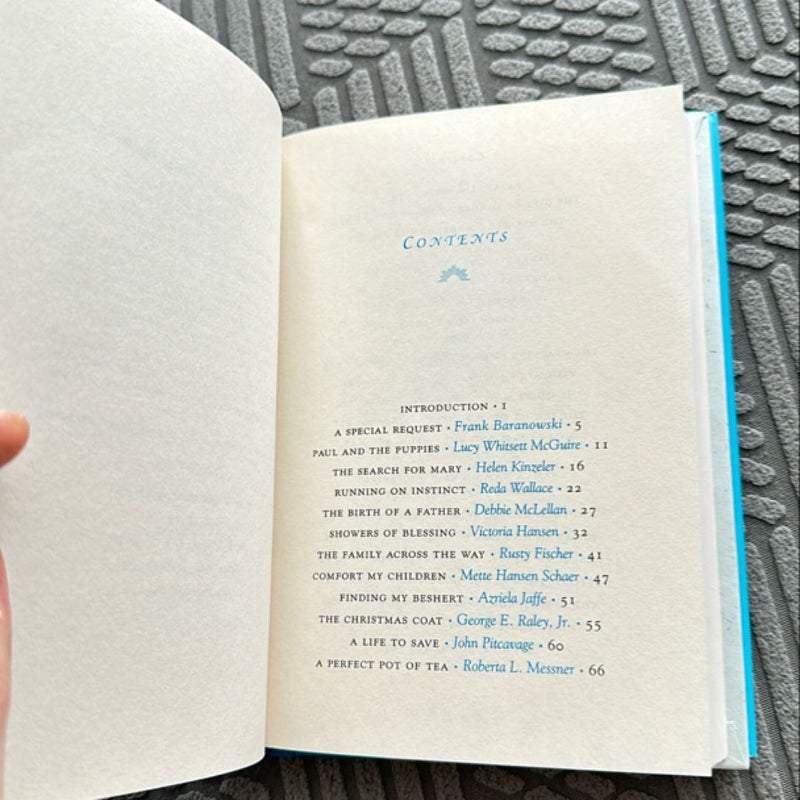 CONTENTS
INTRODUCTION • 1
A SPECIAL REQUEST • Frank Baranowski • 5
PAUL AND THE PUPPIES • Lucy Whitsett McGuire • 11
THE SEARCH FOR MARY • Helen Kinzeler • 16
RUNNING ON INSTINCT • Reda Wallace • 22
THE BIRTH OF A FATHER • Debbie McLellan • 27
SHOWERS OF BLESSING • Victoria Hansen • 32
THE FAMILY ACROSS THE WAY • Rusty Fischer • 41
COMFORT MY CHILDREN • Mette Hansen Schaer • 47
FINDING MY BESHERT • Azriela Jaffe • 51
THE CHRISTMAS COAT • George E. Raley, Jr. • 55
A LIFE TO SAVE • John Pitcavage • 60
A PERFECT POT OF TEA • Roberta L. Messner • 66